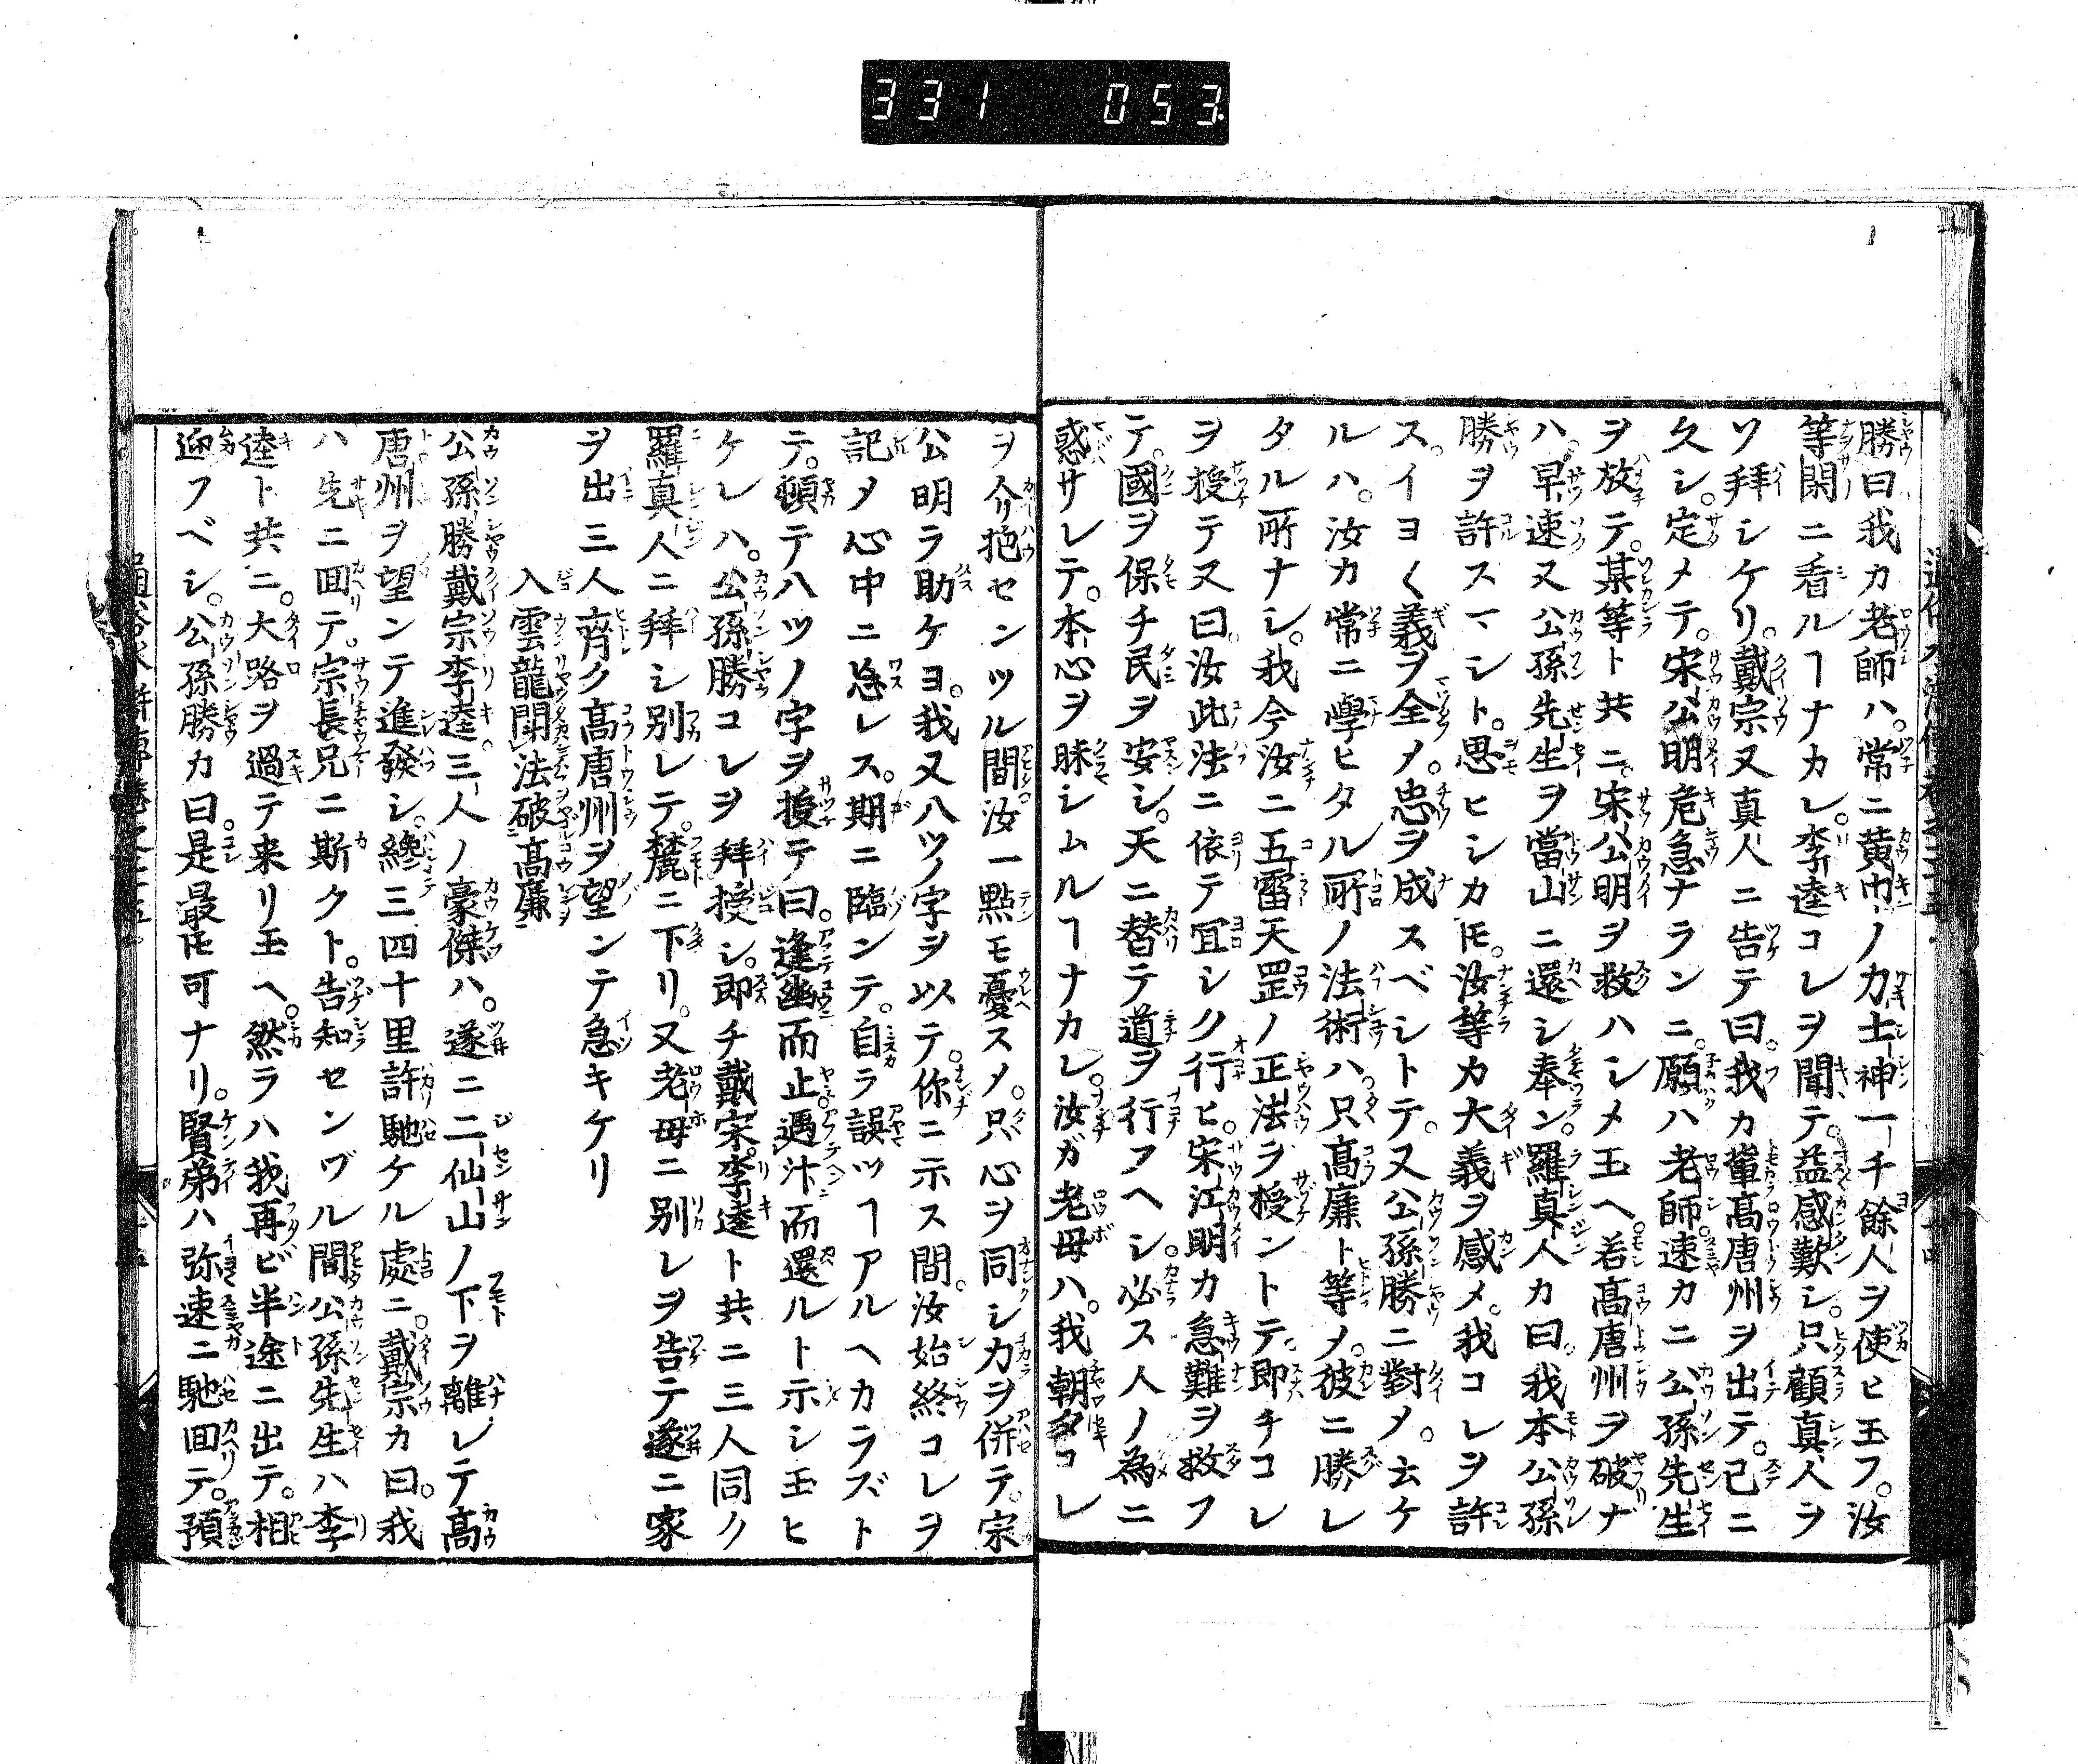 331 053
勝曰我カ老師ハ。常ニ黄巾ノ力士神一千餘人ヲ使ヒ玉フ。汝
等閑ニ看ルヿナカレ。李逵コレヲ聞テ。益感歎シ。只顧真人ヲ
ソ拜シケリ。戴宗又真人ニ告テ曰。我カ輩高唐州ヲ出テ。已ニ
久シ。定メテ。宋公明危急ナランニ。願ハ老師速カニ公孫先生
ヲ放テ。某等ト共ニ。宋公明ヲ救ハシメ玉ヘ。若高唐州ヲ破ナ
ハ。早速又公孫先生ヲ當山ニ還シ奉ン。羅真人カ曰。我本公孫
勝ヲ許スマシト。思ヒシカ𪜈。汝等カ大義ヲ感メ。我コレヲ許
ス。イヨ〱義ヲ全メ。忠ヲ成スベシトテ。又公孫勝ニ對メ。云ケ
ルハ。汝カ常ニ學ヒタル所ノ法術ハ。只高廉ト等メ。彼ニ勝レ
タル所ナシ。我今汝ニ五雷天罡ノ正法ヲ授ントテ。即チコレ
ヲ授テ又曰。汝此法ニ依テ冝シク行ヒ。宋江明カ急難ヲ救フ
テ。國ヲ保チ民ヲ安シ。天ニ替テ道ヲ行アヘシ。必ス人ノ為ニ
惑サレテ。本心ヲ昧シムルヿナカレ。汝ガ老母ハ。我朝夕コレ
ヲ介抱センツル間。汝一點モ憂スメ。只心ヲ同シ力ヲ併テ。宗
公明ラ助ケヨ。我又八ツノ字ヲ以テ。你ニ示ス間。汝始終コレヲ
記メ心中ニ忘レス。期ニ臨ンテ。自ラ誤ツヿアルヘカラズト
テ。頓テ八ツノ字ヲ授テ曰。逢幽而止。遇汴而還ルト示シ玉ヒ
ケレハ。公孫勝コレヲ拜授シ。即チ戴宗。李逵ト共ニ三人同ク
羅真人ニ拜シ別レテ。麓ニ下リ。又老母ニ別レヲ告テ遂ニ家
ヲ出三人齊ク高唐州ヲ望ンテ急キケリ
入雲龍鬪法破高廉
公孫勝戴宗李逵三人ノ豪傑ハ。遂ニ二仙山ノ下ヲ離レテ高
唐州ヲ望ンテ進發シ。纔三四十里許馳ケル處ニ。戴宗カ曰。我
ハ先ニ囬テ。宗長兄ニ斯クト。告知センヅル間公孫先生ハ李
逵ト共ニ。大路ヲ過テ来リ玉ヘ。然ラハ我再ビ半途ニ出テ。相
迎フベシ。公孫勝カ曰。是最𪜈可ナリ。賢弟ハ弥速ニ馳囬テ。預